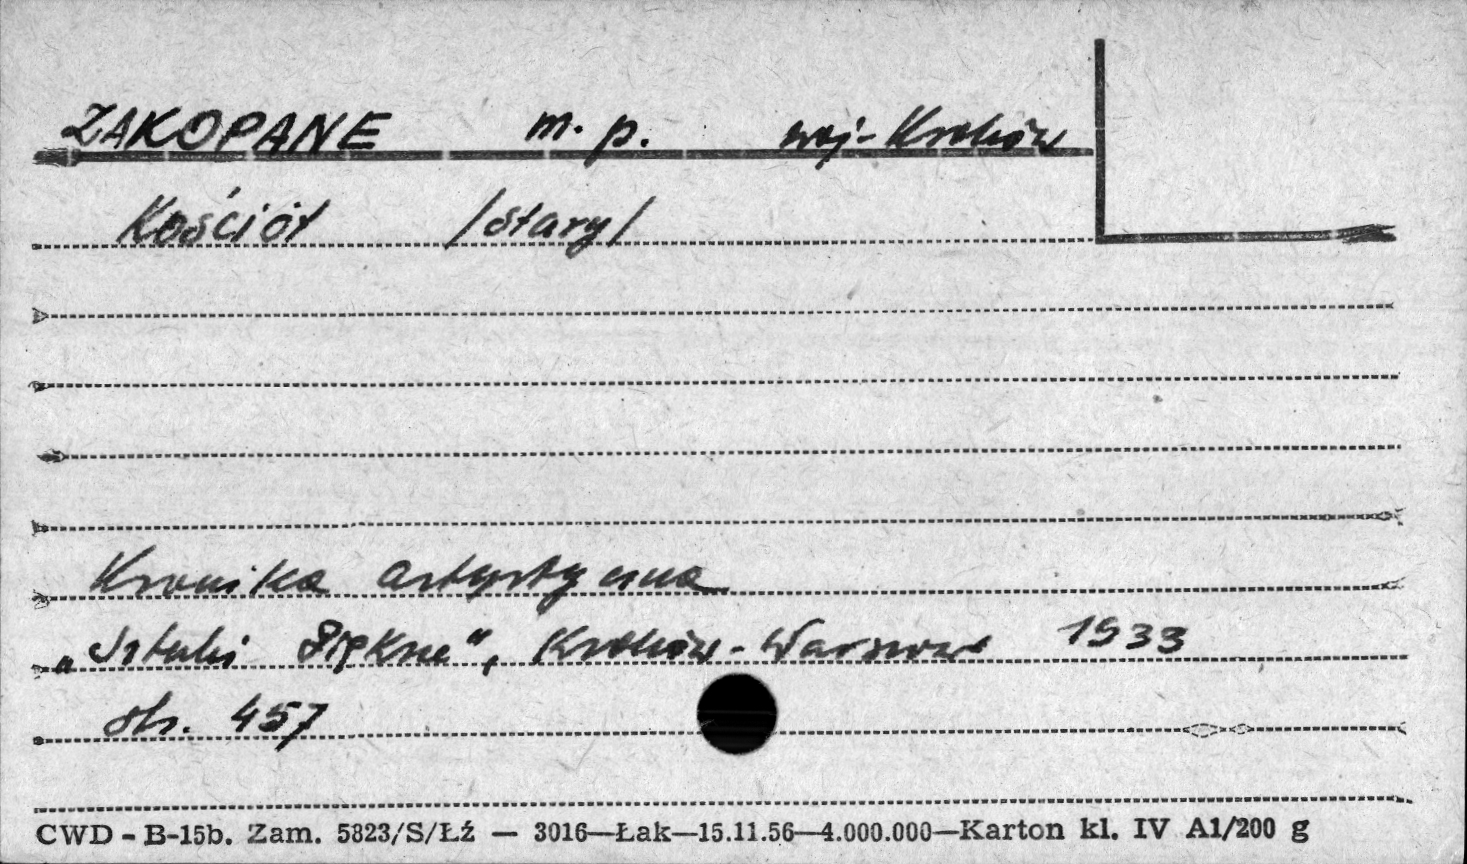 ZAKOPANE m. p. woj-Kraków
Kościół /stary/
Kronika artystyczna
„Sztuki Piękne", Kraków-Warszawa 1933
str. 457
CWD - B-15b. Zam. 5823/S/Łź — 3016—Łak—15.11.56—4.000.000—Karton kl. IV A1/200 g